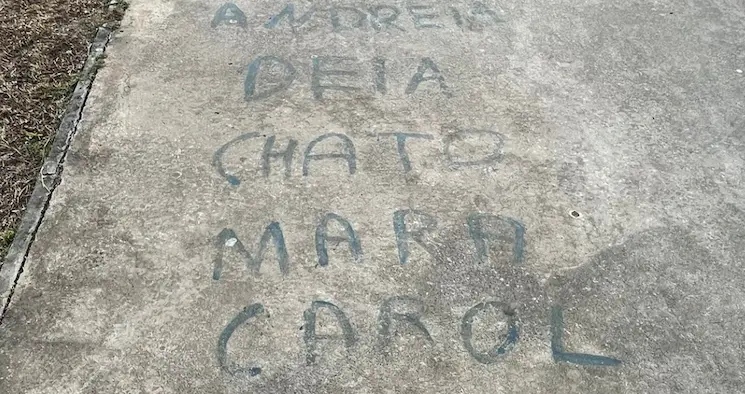 ANDREIA
DEIA
CHATO
MARA
CAROL